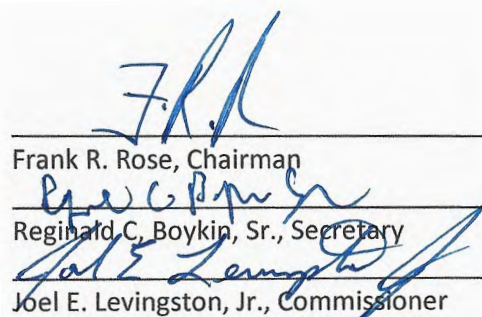 F. R. R
Frank R. Rose, Chairman
Reginald C, Boykin, Sr., Secretary
Joel E. Levingston, Jr.
Joel E. Levingston, Jr., Commissioner